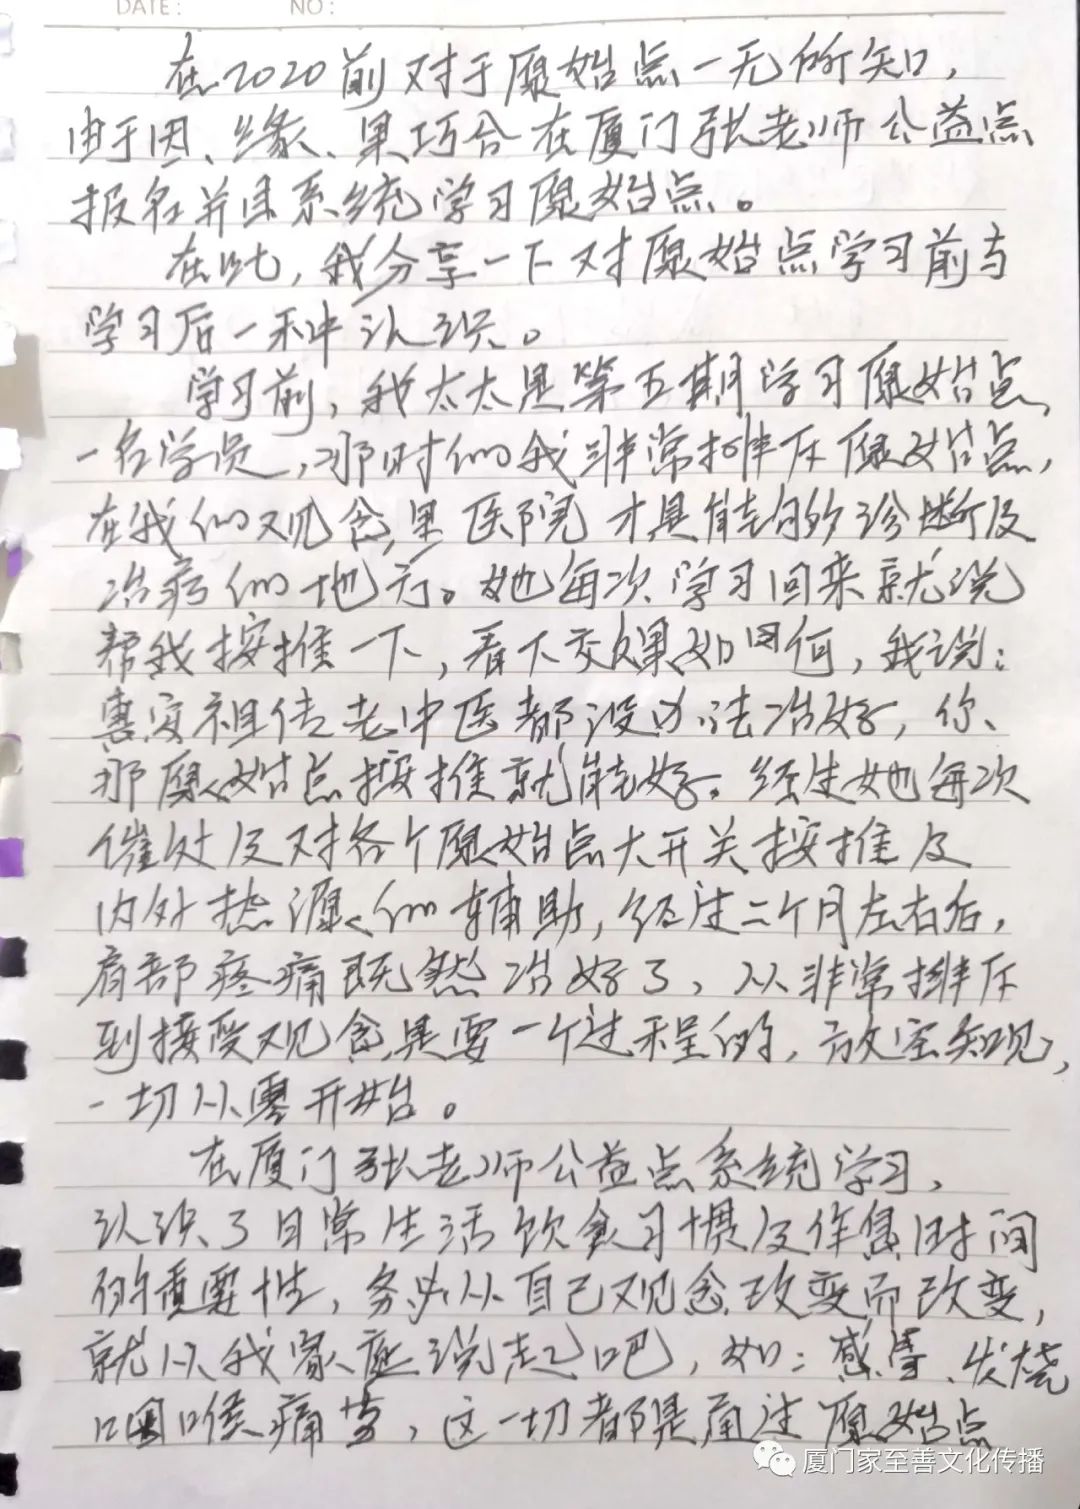 DATE: NO:
在2020前对于原始点一无所知，
由于因、缘、果巧合在厦门张老师公益点
报名并且系统学习原始点。
在此，我分享一下对原始点学习前与
学习后一种认识。
学习前，我太太是第五期学习原始点，
一名学员，那时的我非常排斥原始点，
在我的观念，里医院才具能够诊断及
治病的地方。她每次学习回来就说
帮我按推一下，看下效果如何，我说：
惠安祖传老中医都没办法治好，你、
那原始点按推就能好。经过她每次
催处及对各个原始点大开关按推及
内外热源的辅助，经过二个月左右后，
肩部疼痛既然治好了，从非常排斥
到接受观念是要一个过程的，放空知见，
一切从零开始。
在厦门张老师公益点系统学习，
认识了日常生活饮食习惯及作息时间
的重要性，务必从自己观念改变而改变，
就从我家庭说起吧，如：感冒、发烧
咽喉痛等，这一切都是通过原始点
厦门家至善文化传播